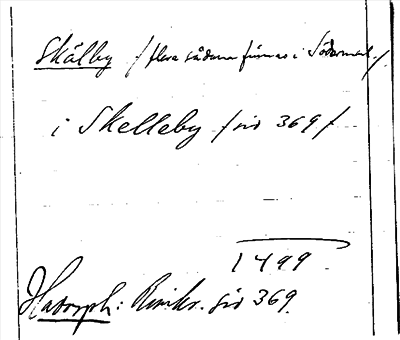 Skälby / flera sådana finnas i Södermanl. /
i Skelleby / sid 369 /
1499.
Hadorph: Rimkr. sid 369.